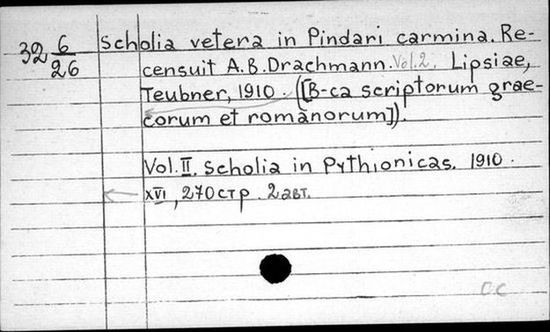 32 6/26 Scholia vetera in Pindari carmina. Re-
censuit A.B.Drachmann. Vol.2. Lipsiae,
Teubner, 1910. ([B-ca scriptorum grae-
corum et romanorum]).
Vol. II. Scholia in Pythionicas. 1910.
XVI, 270 стр. 2 авт.